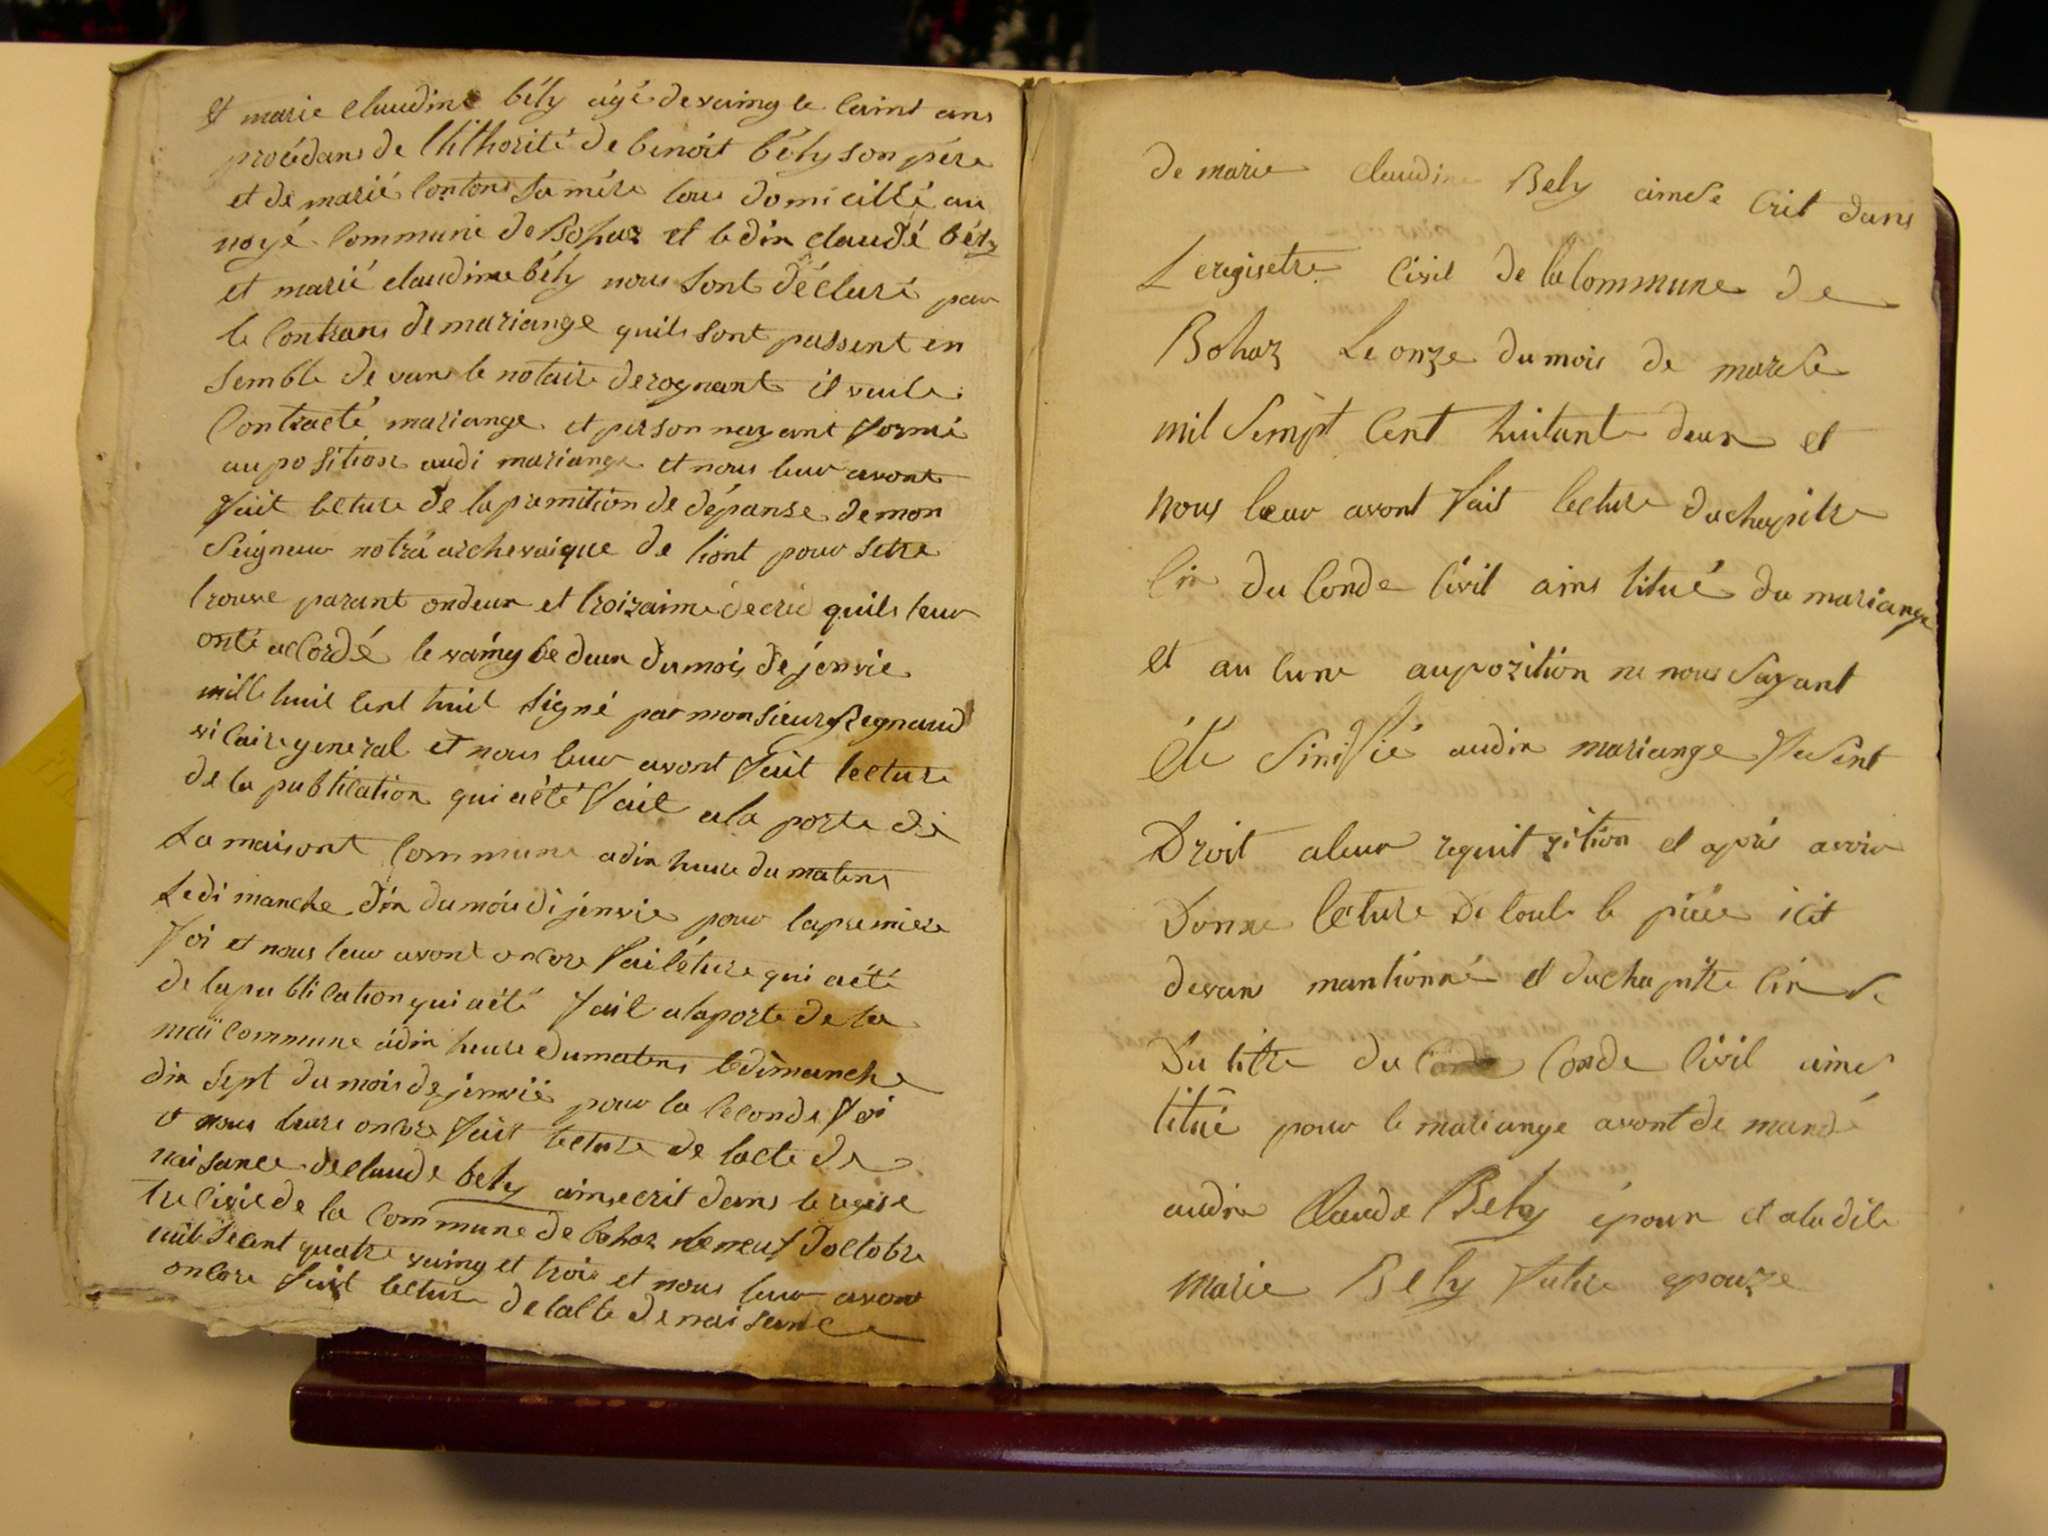 et marie claudine bély âgé de vaing le caint ans
procédans de lhthorité de benoit bély son pére
et de marié contons sa mére tous domicillé au
noyé commune de Bohaz et ledin claudé bély
et marié claudine bély nous sont déclaré par
le contrans de mariange quils sont passent en
semble de vans le notaire derognant il veule
contracté mariange et person nayant formé
auposition audi mariange et nous leur avont
fait lecture de la pramition de dépanse de mon
seigneur notrá archevaique de liont pour setre
trouve parant ondeux et troizaime décrié quils leur
onté accordé le vaing le deux du mois de jenvie
mille huit cent huit signé par monsieur Regnaud
vicaire general et nous leur avont fait lecture
de la publication qui aété fait ala porte de
La maisont commune adix heure du matens
Ledimanche dix du mois di jenvie pour la premiere
foi et nous leur avont oncore fai léture qui aété
de la publication qui aété fait alaporte de la
mai commune adix heure dumatens ledimanche
dix sept du mois de jenvié pour la seconde foi
et nous leurs oncore fait lecture de lacte de
naisance de claude bely ainsecrit dans le regise
tre civil de la commune de bohaz le neuf doctobre
mil seant quatre vaing et trois et nous leur avont
oncore fait lecture de lalte de naisance
de marie claudine Bely ainse crit dans
Leregisetre civil de la Commune de
Bohaz Le onze du mois de marse
mil sempt cent huitante deux et
nous leur avont fait lecture duchapitre
cin du Conde civil ains titué du mariange
et au cune aupozition ne nous sayant
été sinifié audin mariange fesent
Droit aleur requit zition et aprés avoir
Donne lecture de toute le piéce icit
devans mantionné et duchapitre cin de
Du titre du Conde civil aines
titué pour le mariange avont de mandé
audin Claude Bely époux et aladite
marie Bely future epouze